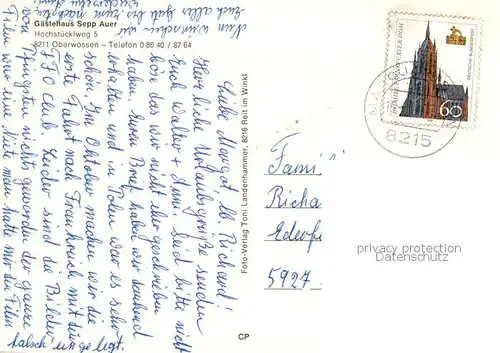 Gästehaus Sepp Auer
Hochstücklweg 5
8211 Oberwössen – Telefon 0 86 40 / 87 64
Liebe Margot, lb. Richard!
Herzliche Urlaubsgrüße senden
Euch Walter + Anni. Seid bitte nicht
böse das wir nicht hergeschrieben
haben. Euren Brief haben wir dankend
erhalten und in Polen war es sehr
schön. Im Oktober machen wir die
erste Fahrt nach Frankreich mit dem
FFO Club. Leider sind die Bilder
v. Pfingsten nichts geworden der ganze
Film war eine Niete man hatte mir den Film
falsch eingelegt.
Nun wünschen wir
Euch alles Gute bis zum nächsten
Foto-Verlag Toni Landenhammer, 8216 Reit im Winkl
CP
DEUTSCHE BUNDESPOST
60
8215
Fami
Richa
Ederfs
5927
privacy protection
Datenschutz